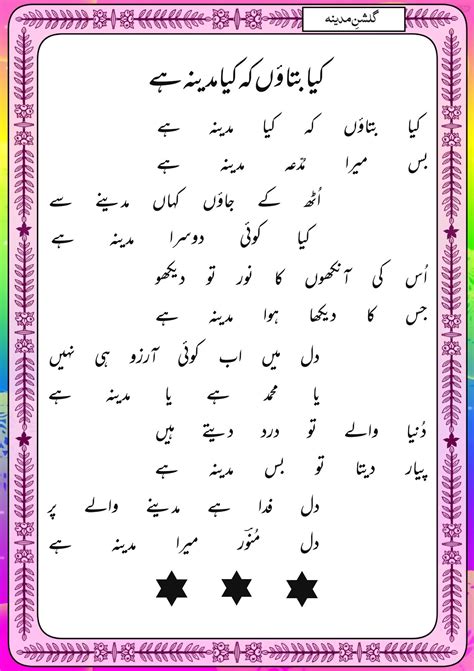 گلشنِ مدینہ
کیا بتاؤں کہ کیا مدینہ ہے
کیا بتاؤں کہ کیا مدینہ ہے
بس میرا مدّعہ مدینہ ہے
اُٹھ کے جاؤں کہاں مدینے سے
کیا کوئی دوسرا مدینہ ہے
اُس کی آنکھوں کا نور تو دیکھو
جس کا دیکھا ہوا مدینہ ہے
دل میں اب کوئی آرزو ہی نہیں
یا محمد ہے یا مدینہ ہے
دُنیا والے تو درد دیتے ہیں
پیار دیتا تو بس مدینہ ہے
دل فدا ہے مدینے والے پر
دل مُنوّر میرا مدینہ ہے